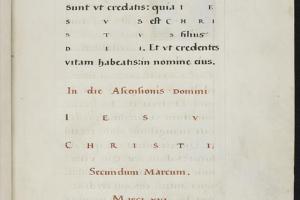 sunt ut credatis: quia I E
S V S est C H R I
S T V S filius
D E I. Et ut credentes
vitam habeatis: in nomine eius.
In die Ascensionis Domini
I E S V
C H R I S T I,
Secundum Marcum.